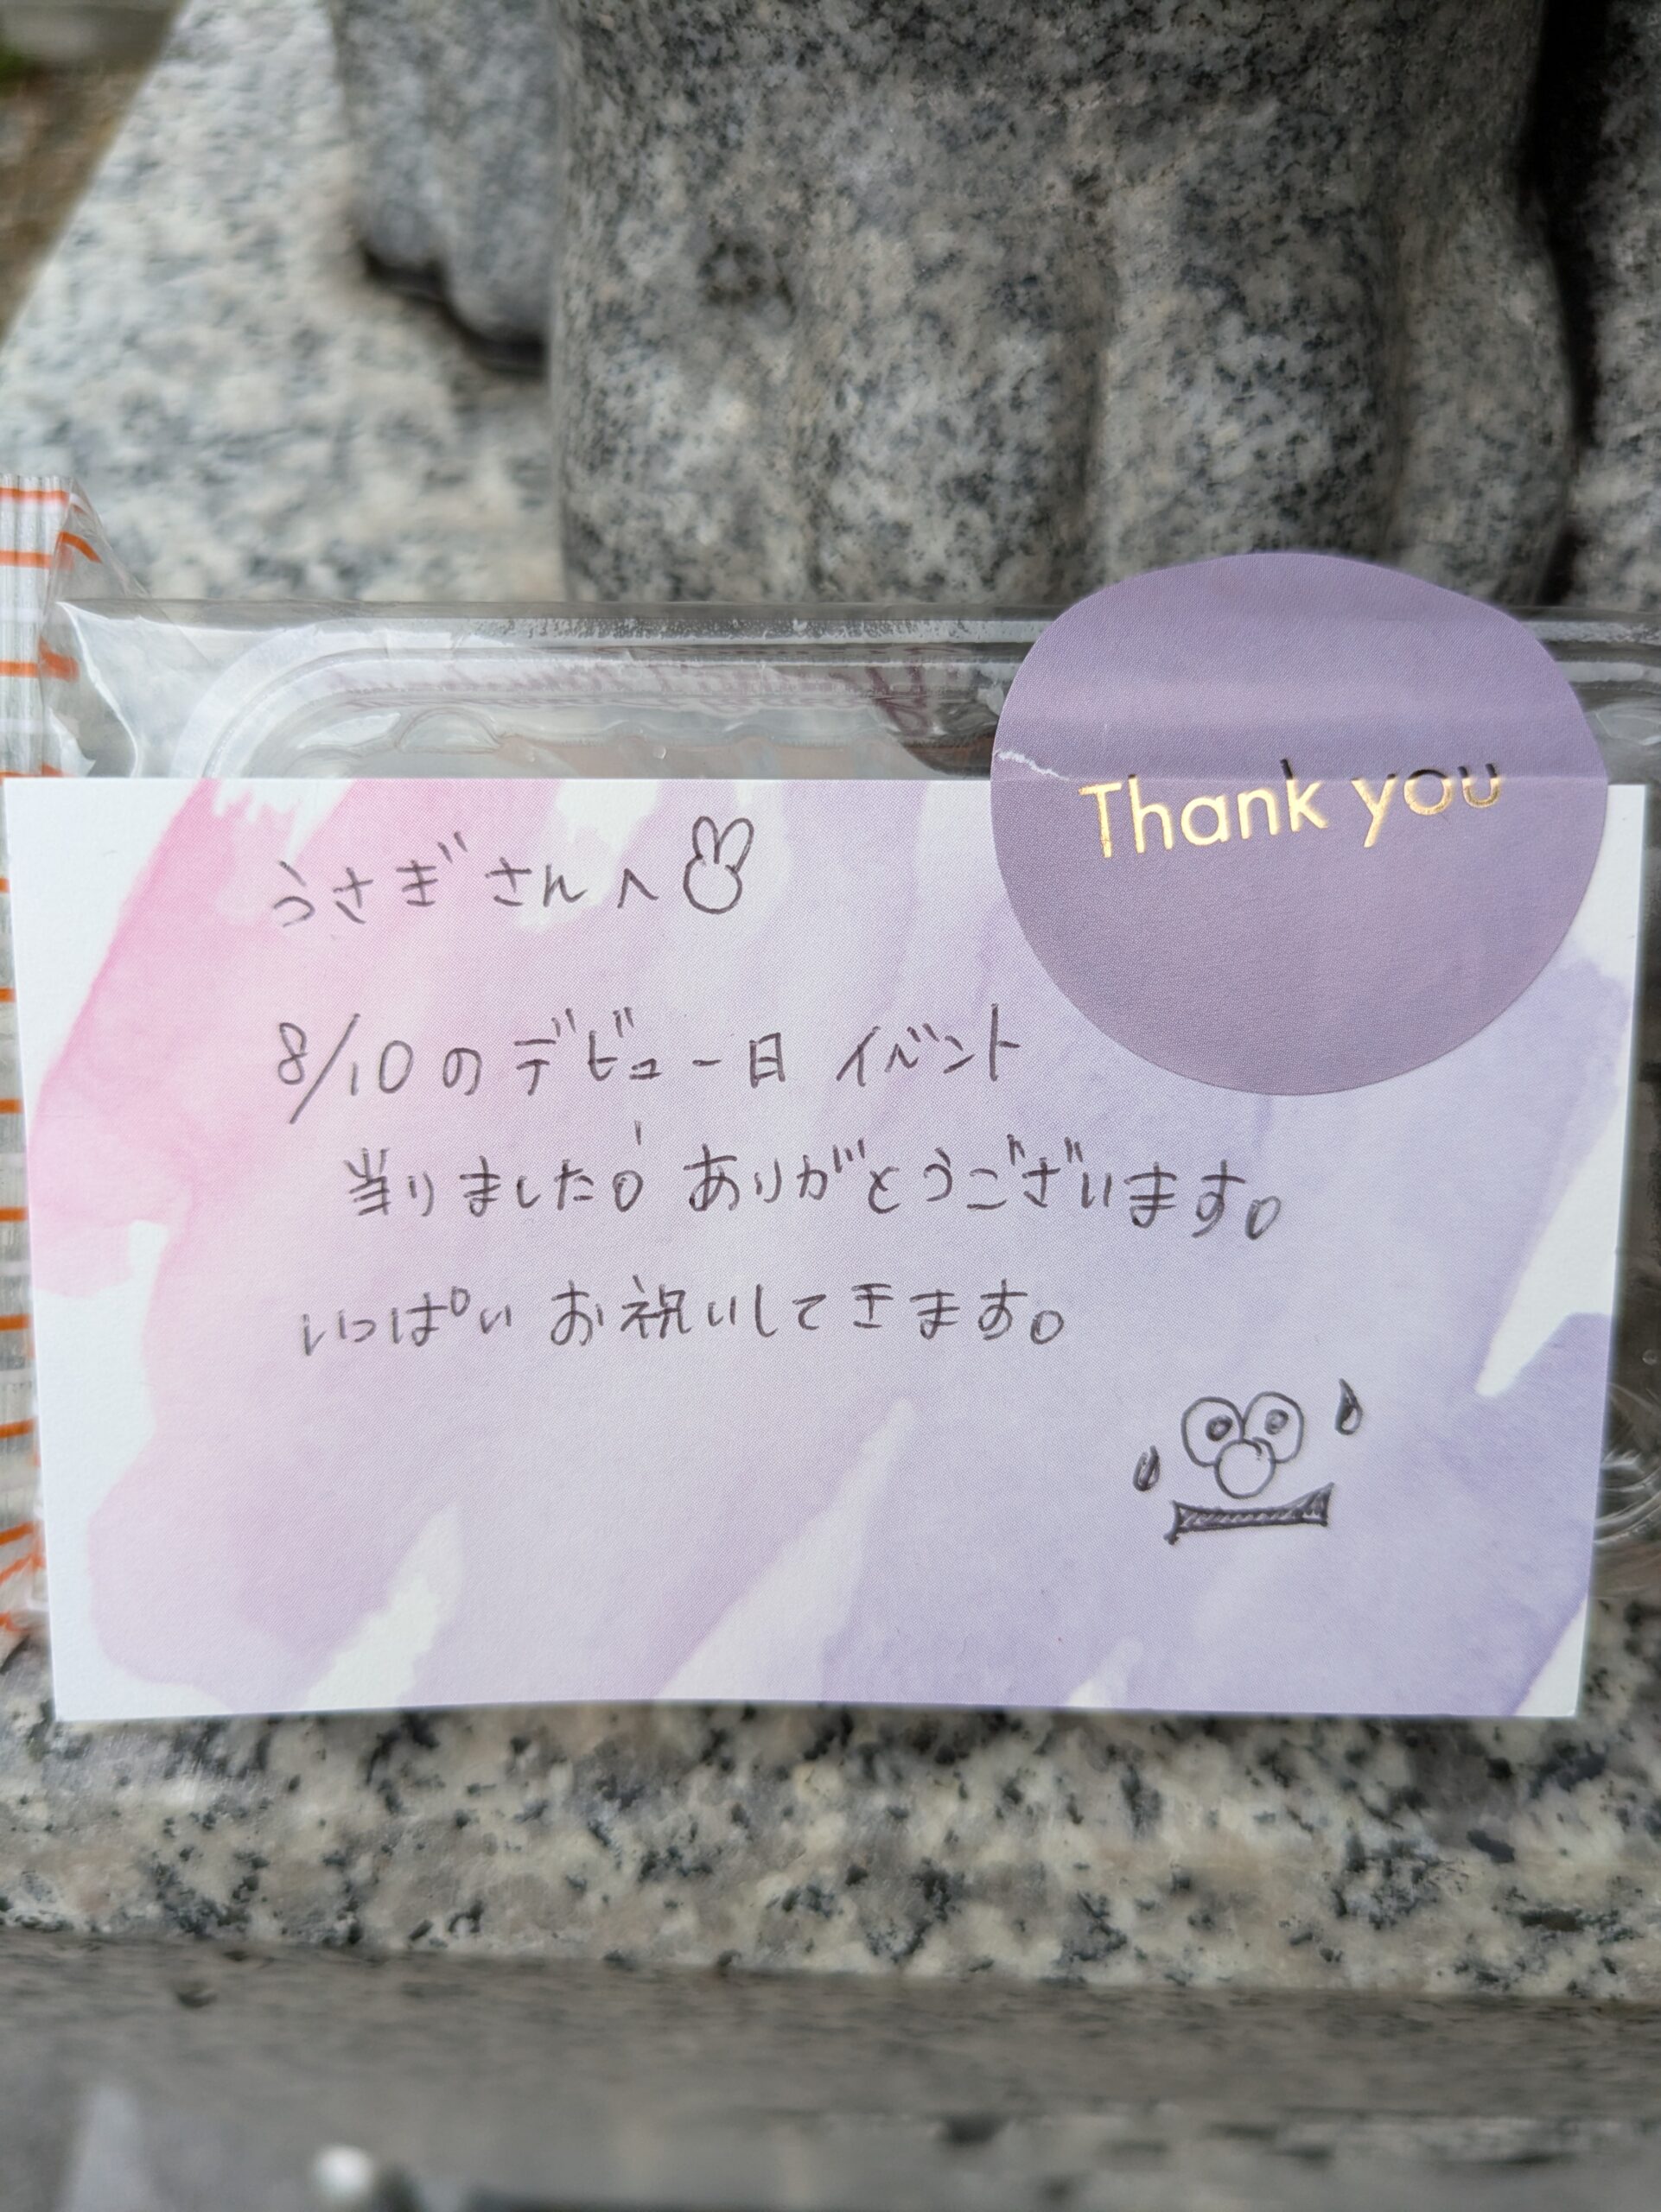 Thank you
うさぎさんへ
8/10のデビュー日 イベント
当りました! ありがとうございます。
いっぱい お祝いしてきます。